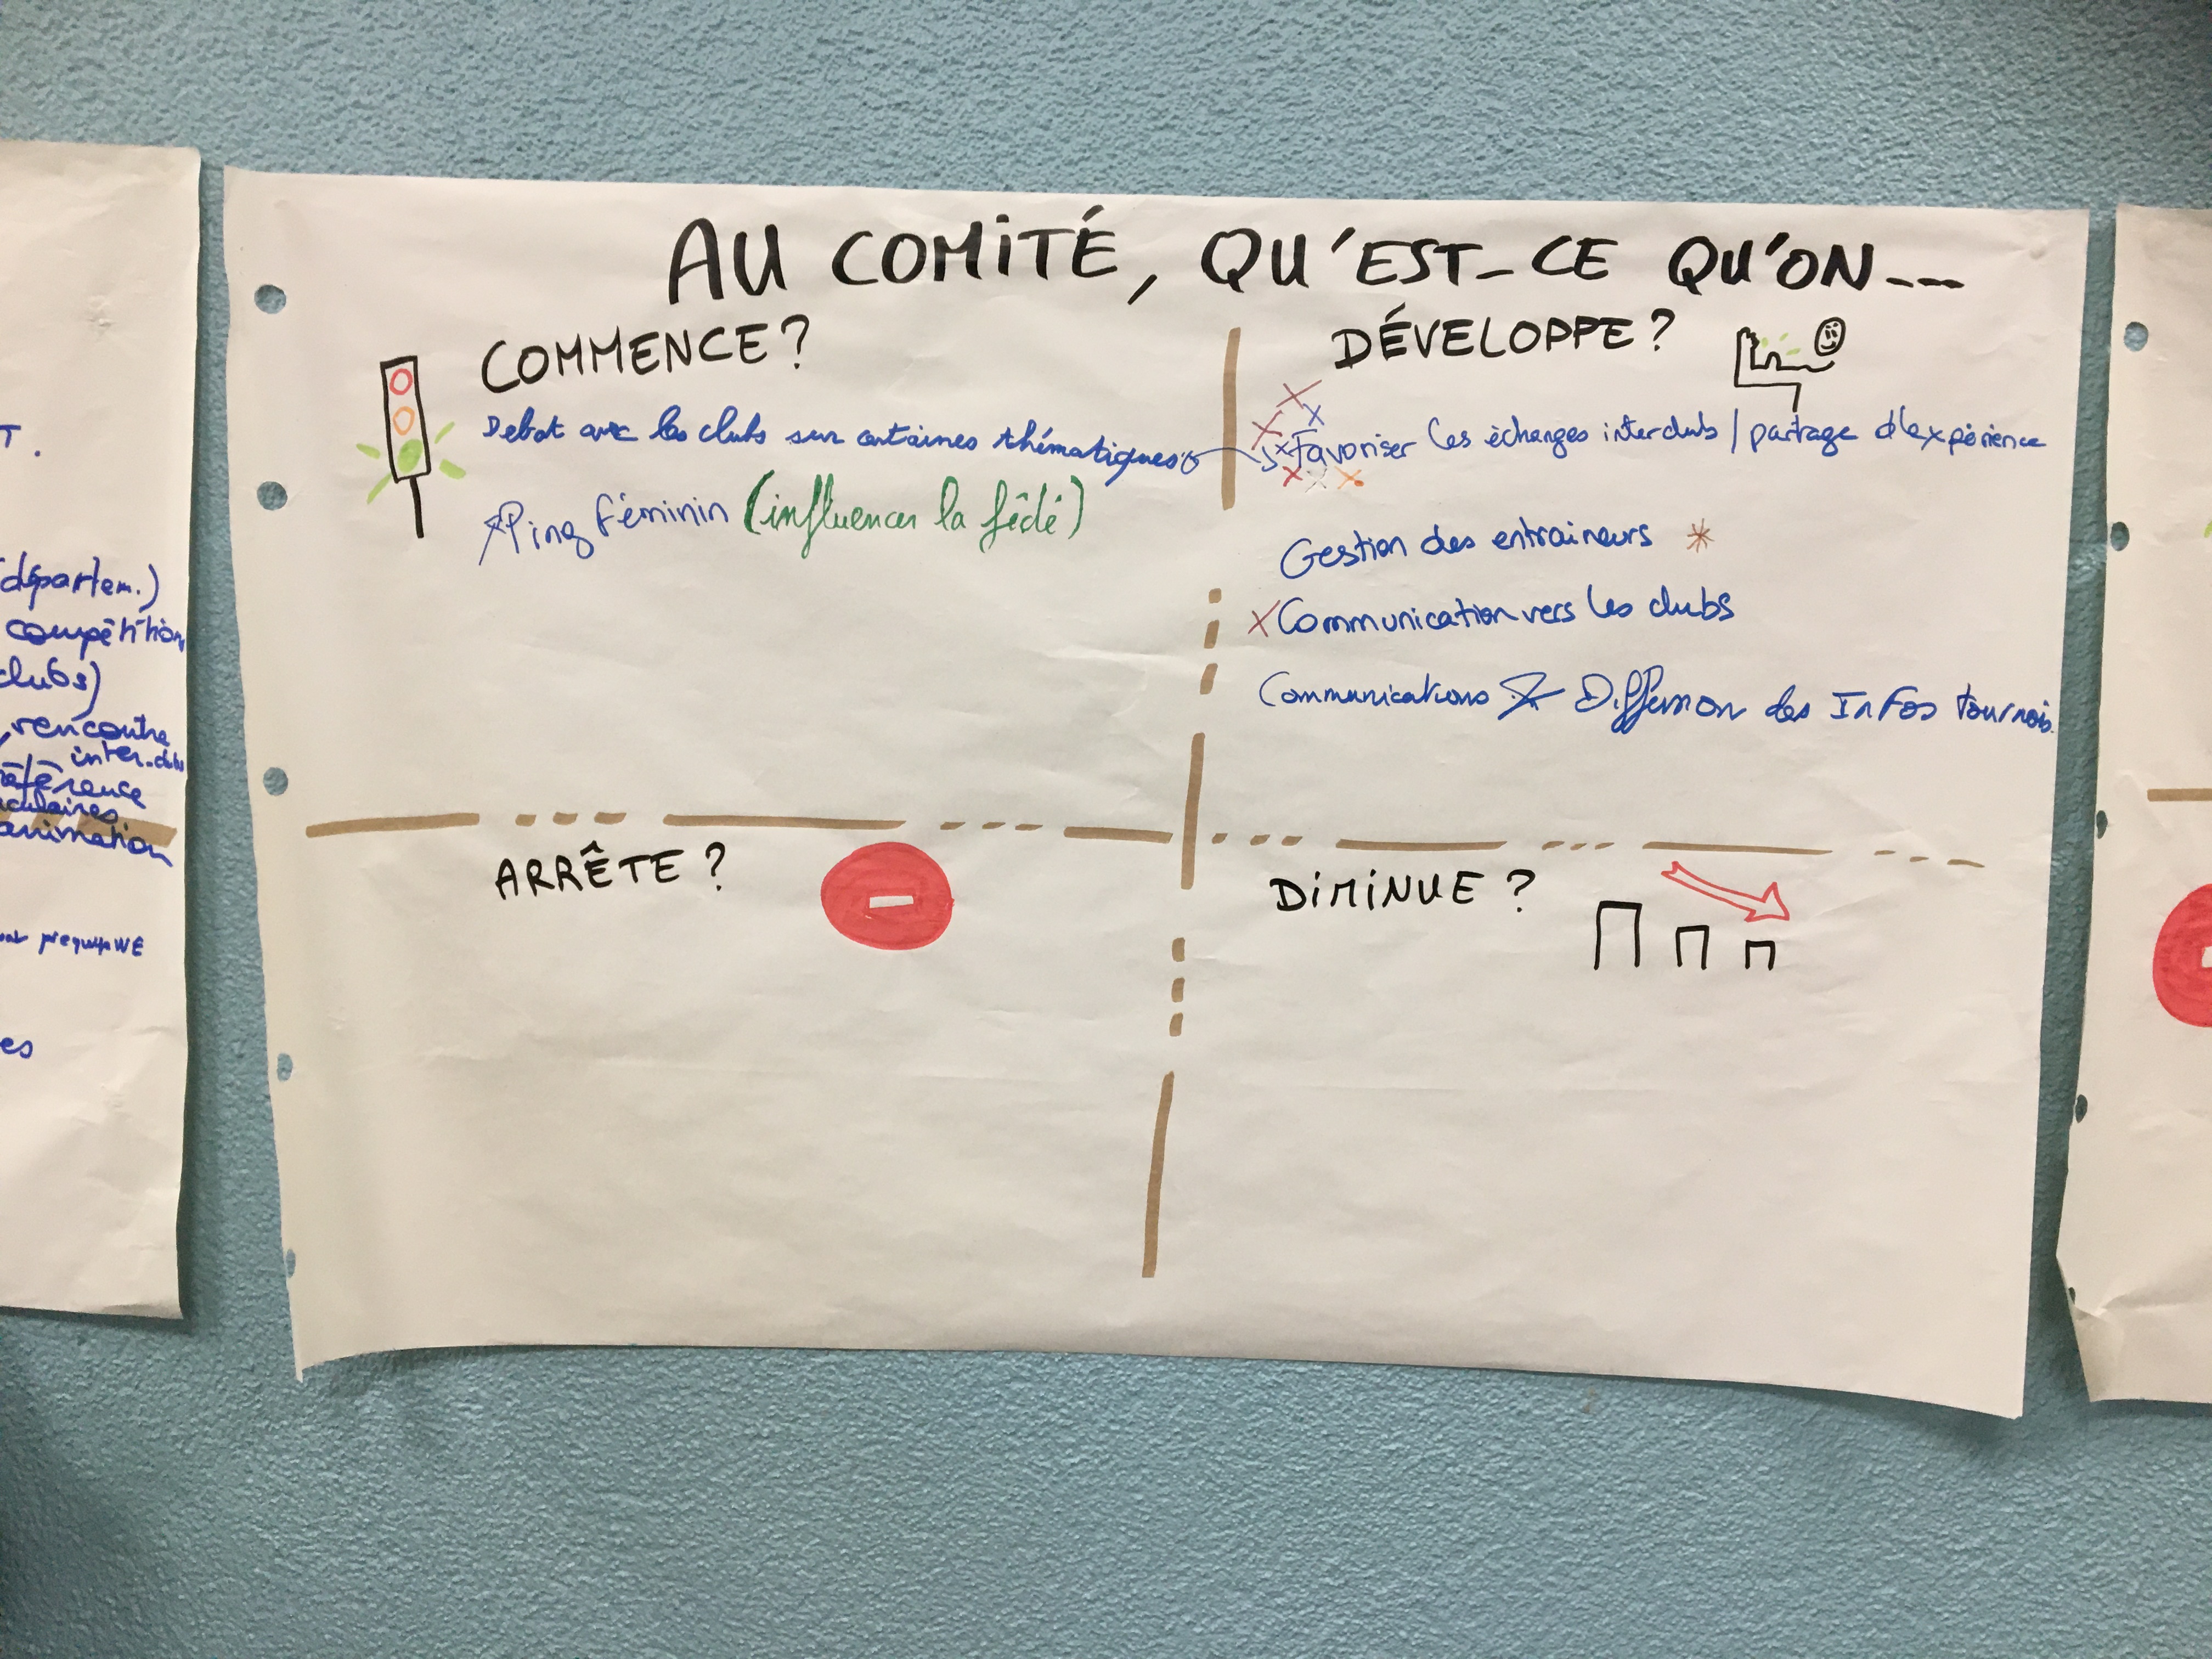 AU COMITÉ, QU'EST-CE QU'ON---
COMMENCE?
Debat avec les clubs sur certaines thématiques
Ping féminin (influencer la fédé)
DÉVELOPPE?
Favoriser les échanges interclubs / partage d'expérience
Gestion des entraineurs *
X Communication vers les clubs
Communications Diffusion des Infos tournois.
ARRÊTE?
DIMINUE?
T.
(départem.)
compétition
clubs)
rencontre
inter-clubs
référence
animation
WE
es